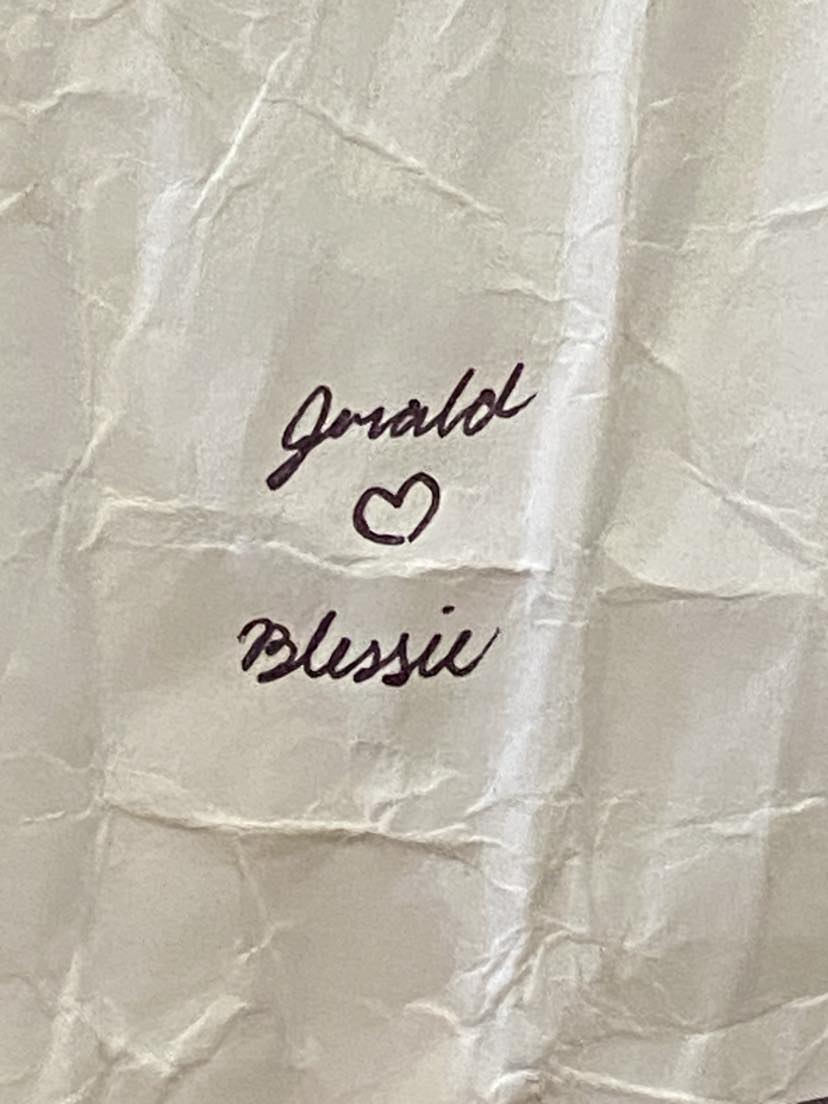 Jerald
♡
Blessie